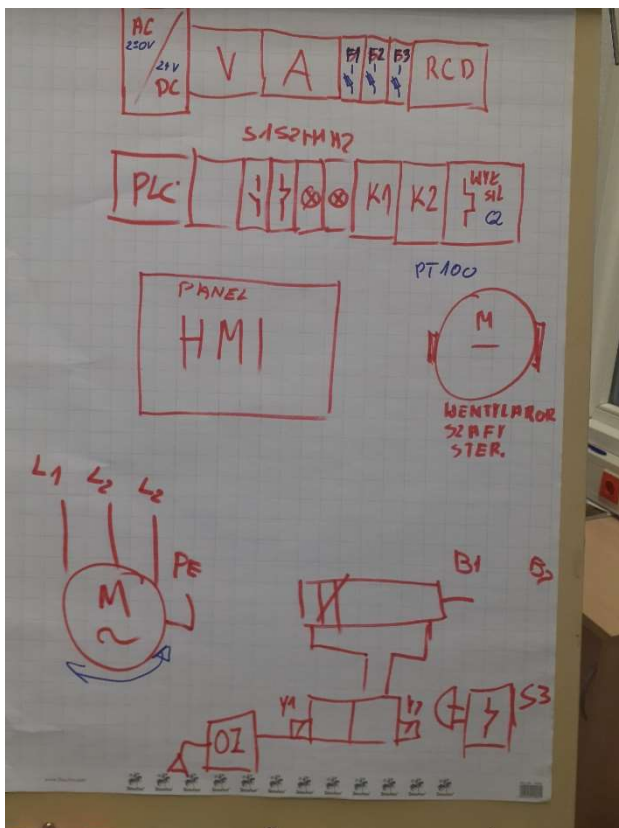 AC
230V
24V
DC
V
A
F1 F2 F3
RCD
S1 S2 H1 H2
PLC
K1
K2
WYŁ
SIL
Q2
PT100
PANEL
HMI
M
WENTYLATOR
SZAFY
STER.
L1 L2 L2
PE
M
~
B1
B2
Y1
Y2
S3
OZ